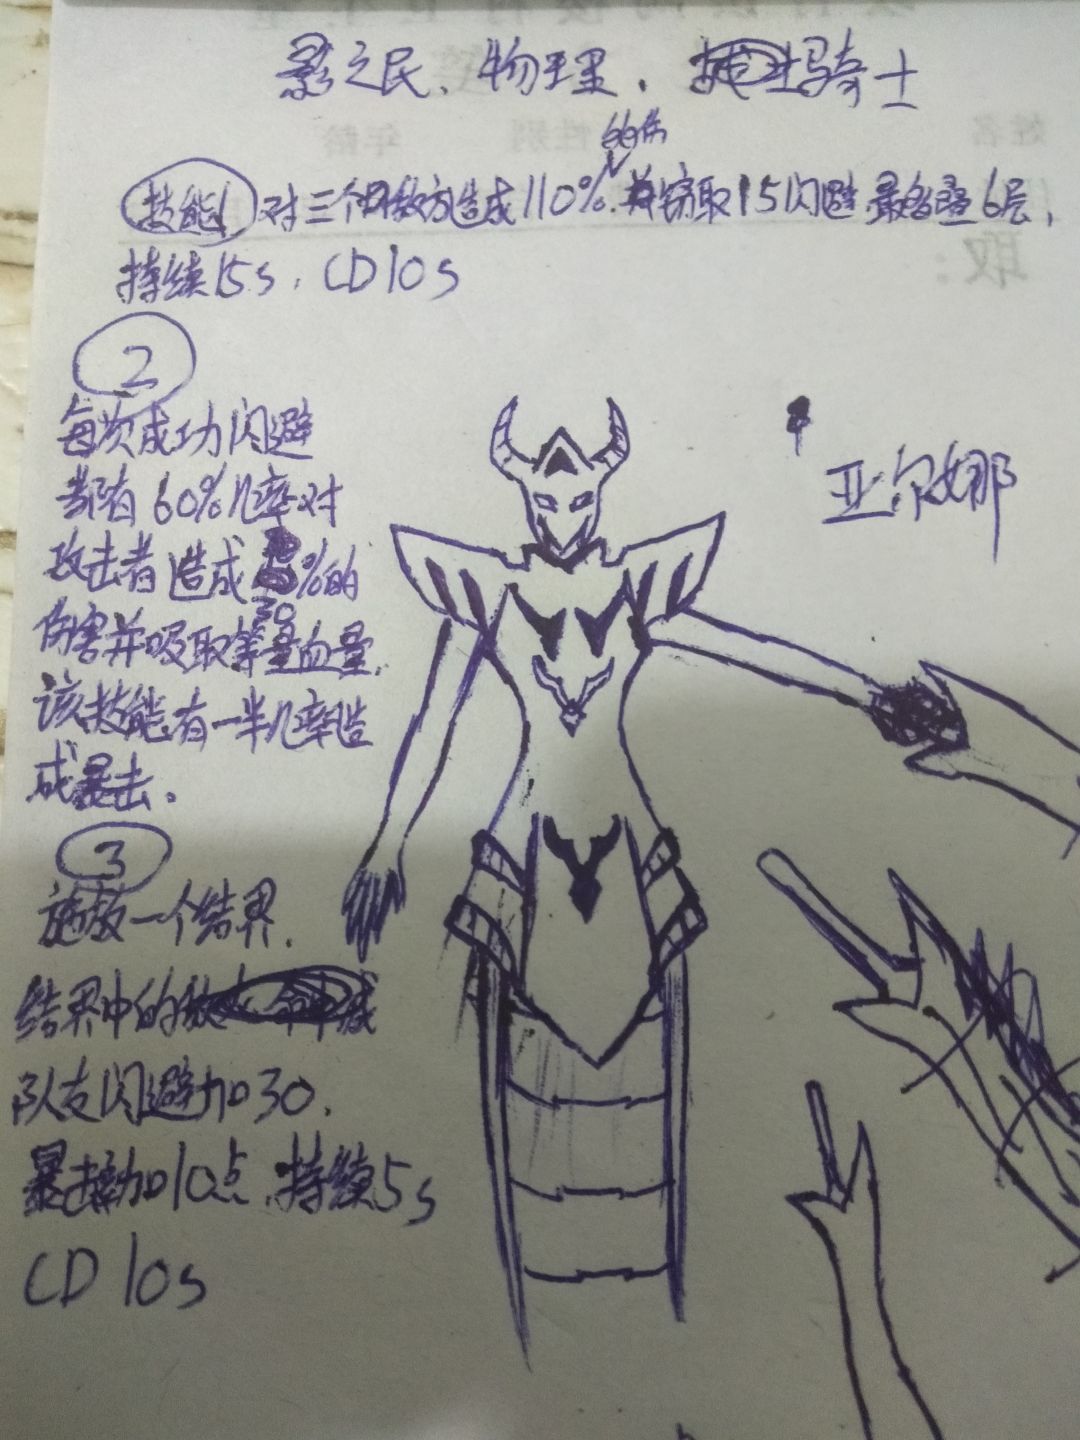 影之民、物理、骑士
的伤
技能1 对三个敌方造成110%并窃取15闪避,最多叠6层,
持续15s,CD10s
2
每次成功闪避
都有60%几率对
攻击者造成%的
30
伤害并吸取等量血量,
该技能有一半几率造
成暴击。
3
施放一个结界,
结界中的
队友闪避加30,
暴击率加10点,持续5s
CD 10s
亚尔娜
姓名
性别
年龄
取: